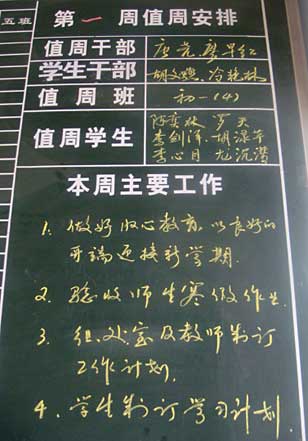 五班
第一周值周安排
值周干部 唐棠 廖早红
学生干部 胡文 冷艳林
值周班 初一(4)
值周学生 罗天
李剑锋 胡渌华
李心月 龙沉潜
本周主要工作
1. 做好收心教育,以良好的
开端迎接新学期.
2. 验收师生寒假作业
3. 组、处室及教师制订
工作计划.
4. 学生制订学习计划